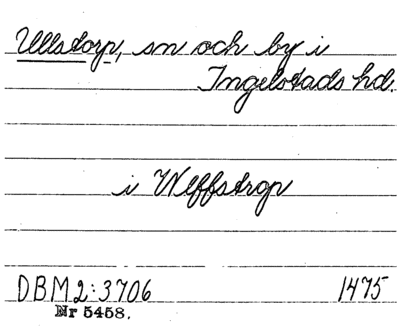 Ullstorp, sn och by i
Ingelstads hd.
i Wlffstrop
DBM 2:3706 1475
Nr 5458.